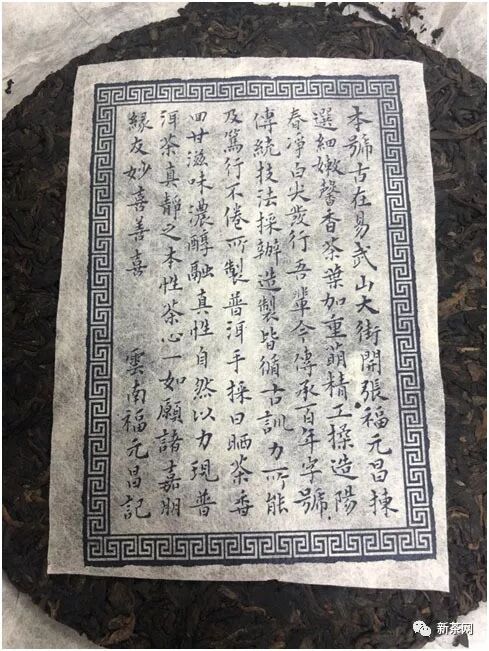 本號古在易武山大街開張福元昌揀
選細嫩馨香茶葉加重萌精工揉造陽
春凈白尖發行吾輩今傳承百年字號
傳統技法採辦造製皆循古訓力所能
及篤行不倦所製普洱手採日晒茶香
回甘滋味濃醇融真性自然以力現普
洱茶真靜之本性茶心一如願諸嘉朋
緣友妙喜善喜 雲南福元昌記
新茶网